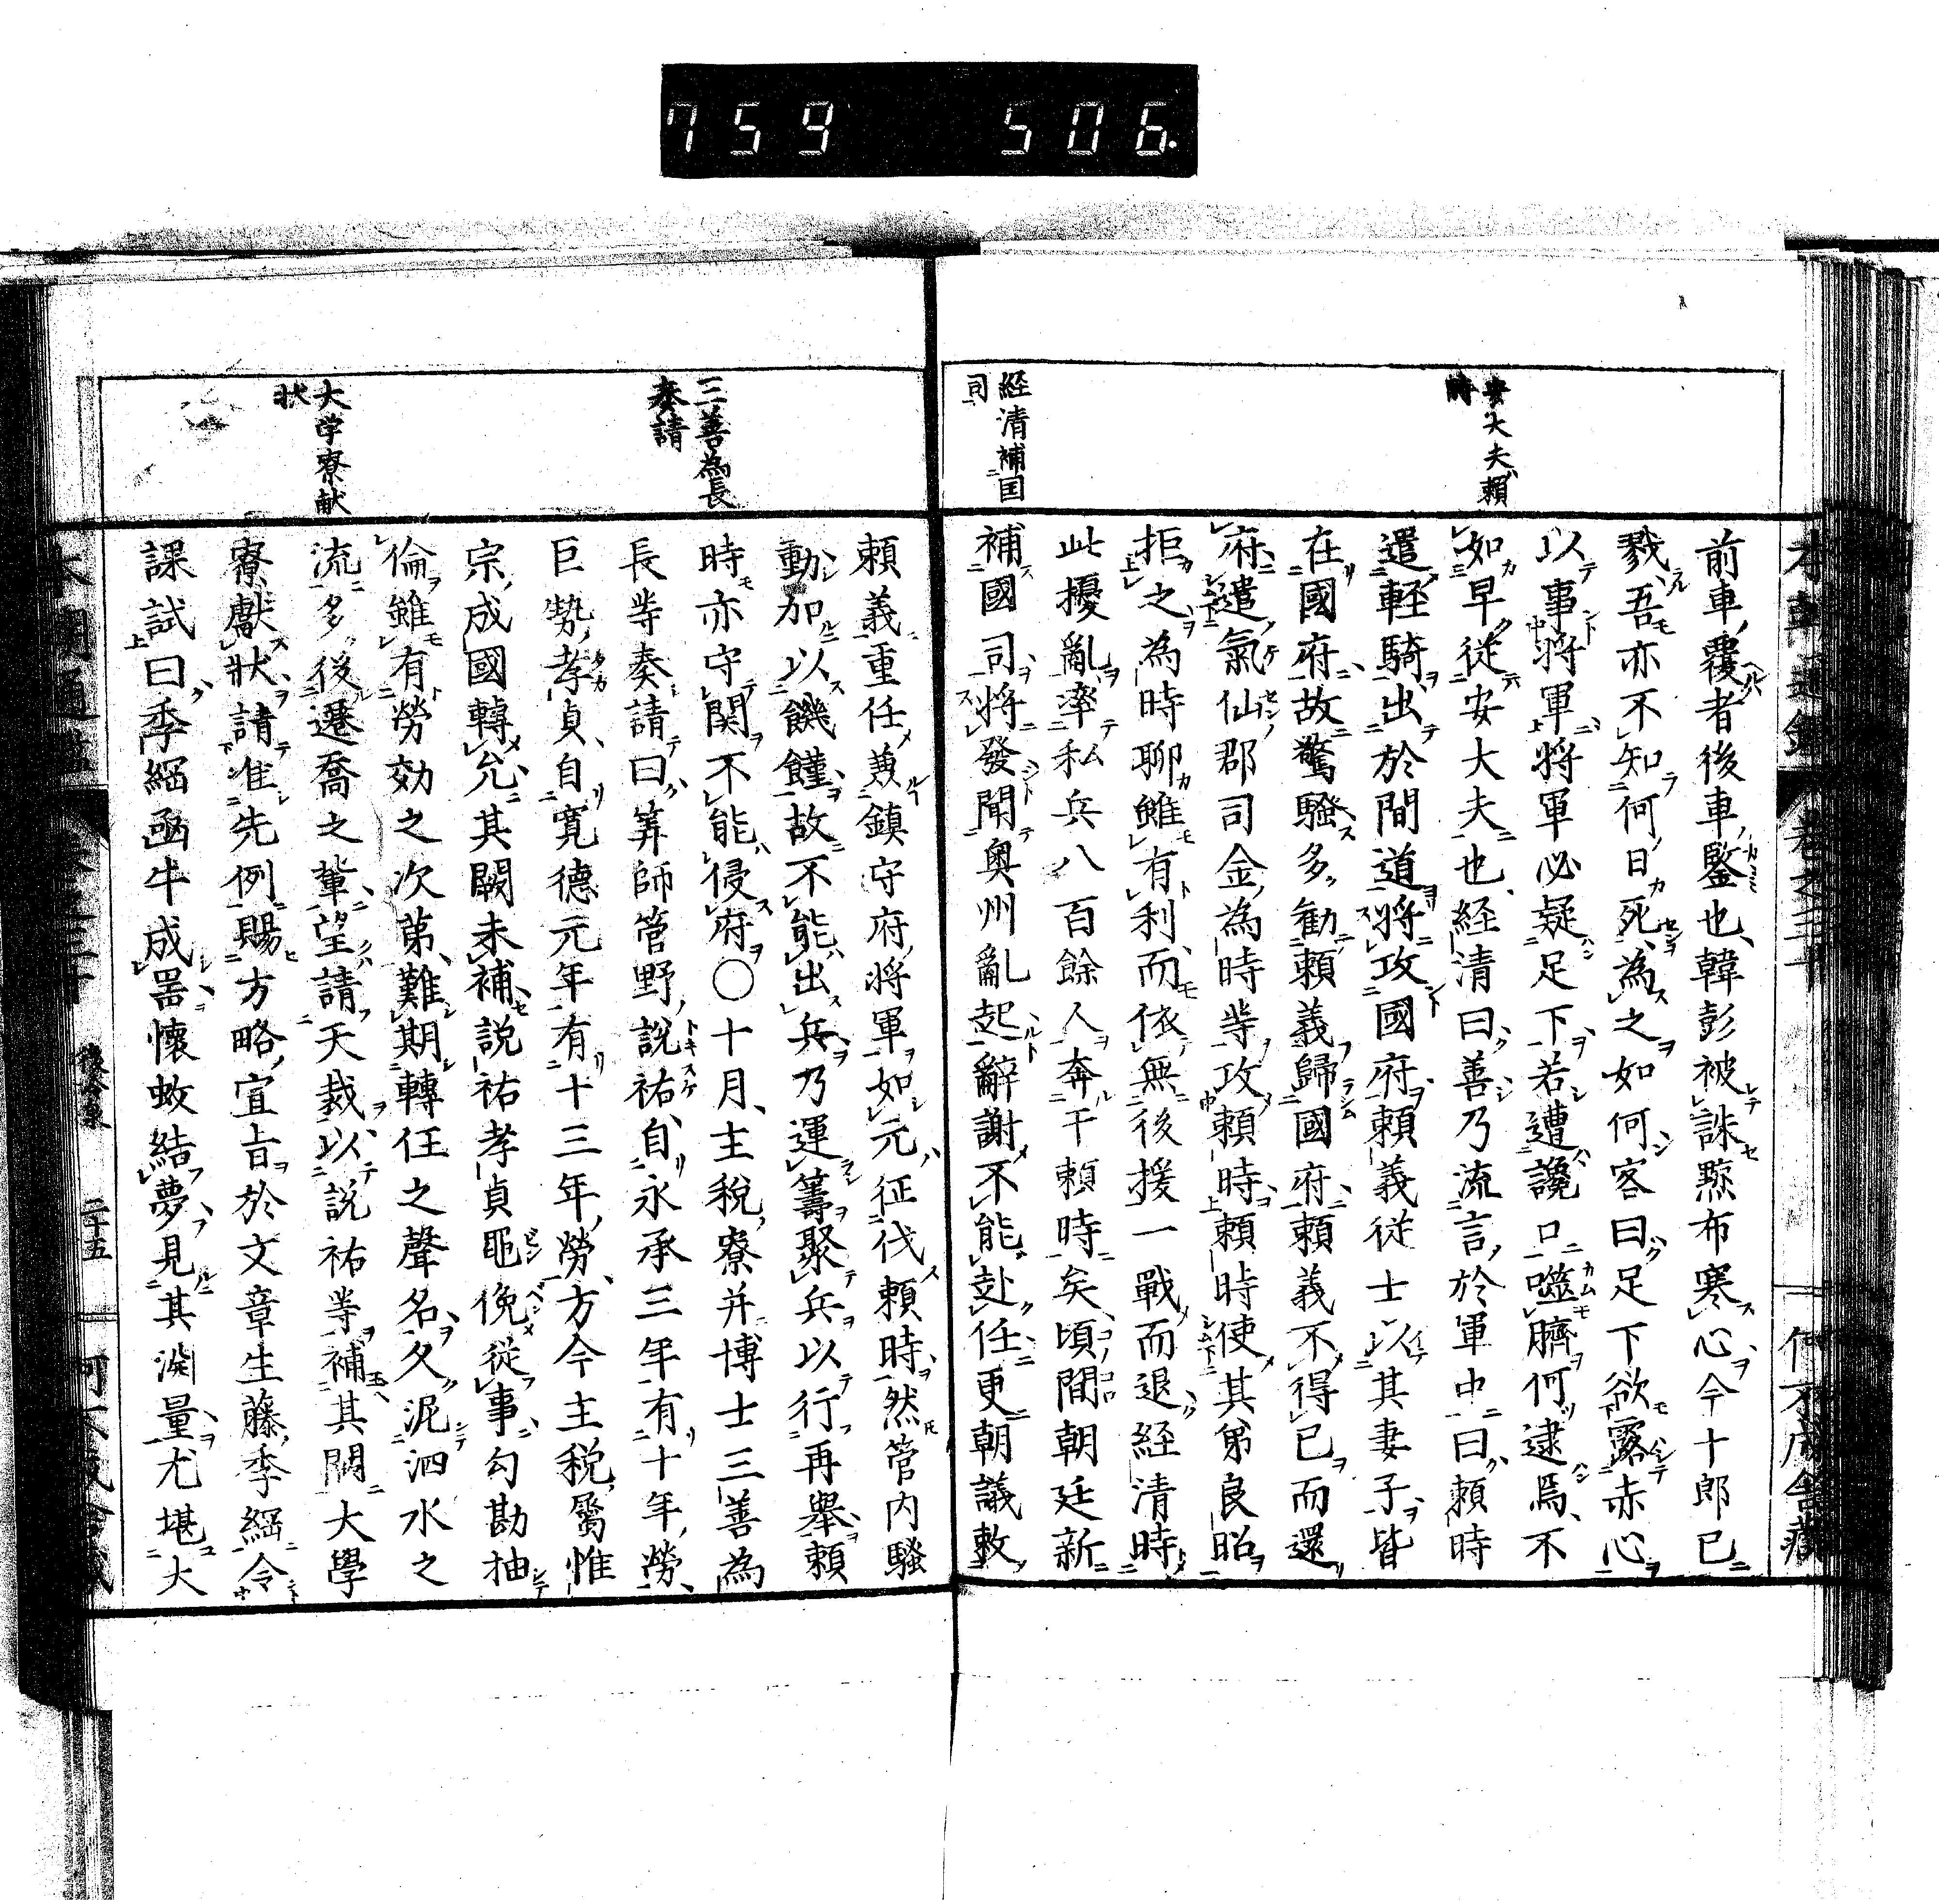 759 506.
安大夫頼
時
経清補国
司
前車覆者後車鑒也韓彭被誅黥布寒心今十郎已
戮吾亦不知何日死為之如何客曰足下欲露赤心
以事将軍将軍必疑足下若遭讒口噬臍何逮焉不
如早従安大夫也経清曰善乃流言於軍中曰頼時
遣軽騎出於間道将攻國府頼義従士以其妻子皆
在國府故驚騒多勧頼義歸國府頼義不得已而還
府遣氣仙郡司金為時等攻頼時頼時使其弟良昭
拒之為時聊雖有利而依無後援一戰而退経清時
此擾亂率私兵八百餘人奔于頼時矣頃間朝廷新
補國司将發聞奥州亂起辭謝不能赴任更朝議敕
三善為長
奏請
大学寮献
状
頼義重任兼鎮守府将軍如元征伐頼時然管内騒
動加以饑饉故不能出兵乃運籌聚兵以行再舉頼
時亦守関不能侵府〇十月主税寮并博士三善為
長等奏請曰筭師管野說祐自永承三年有十年勞
巨勢孝貞自寛德元年有十三年勞方今主税屬惟
宗成國轉允其闕未補說祐孝貞黽俛従事勾勘抽
倫雖有勞効之次第難期轉任之聲名久泥泗水之
流多後遷喬之輩望請天裁以說祐等補其闕大學
寮獻状請准先例賜方略宜旨於文章生藤季綱令
課試曰季綱函牛成噐懷蚊結夢見其淵量尤堪大
後冷泉
二十五